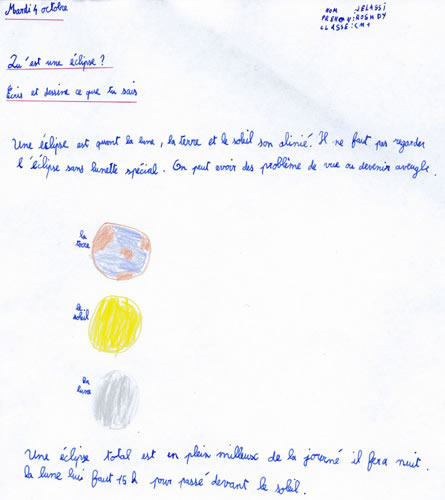 Mardi 4 octobre
NOM : JELASSI
PRENOM : ROSHDY
CLASSE : CM1
Qu'est une éclipse ?
Ecris et dessine ce que tu sais
Une éclipse est quant la lune, la terre et le soleil son alinié. Il ne faut pas regarder
l'éclipse sans lunette spécial. On peut avoir des problème de vue ou devenir aveugle.
la
terre
le
soleil
la
lune
Une éclipse total est en plein milleux de la journé il fera nuit.
la lune lui faut 15 h pour passé devant le soleil.